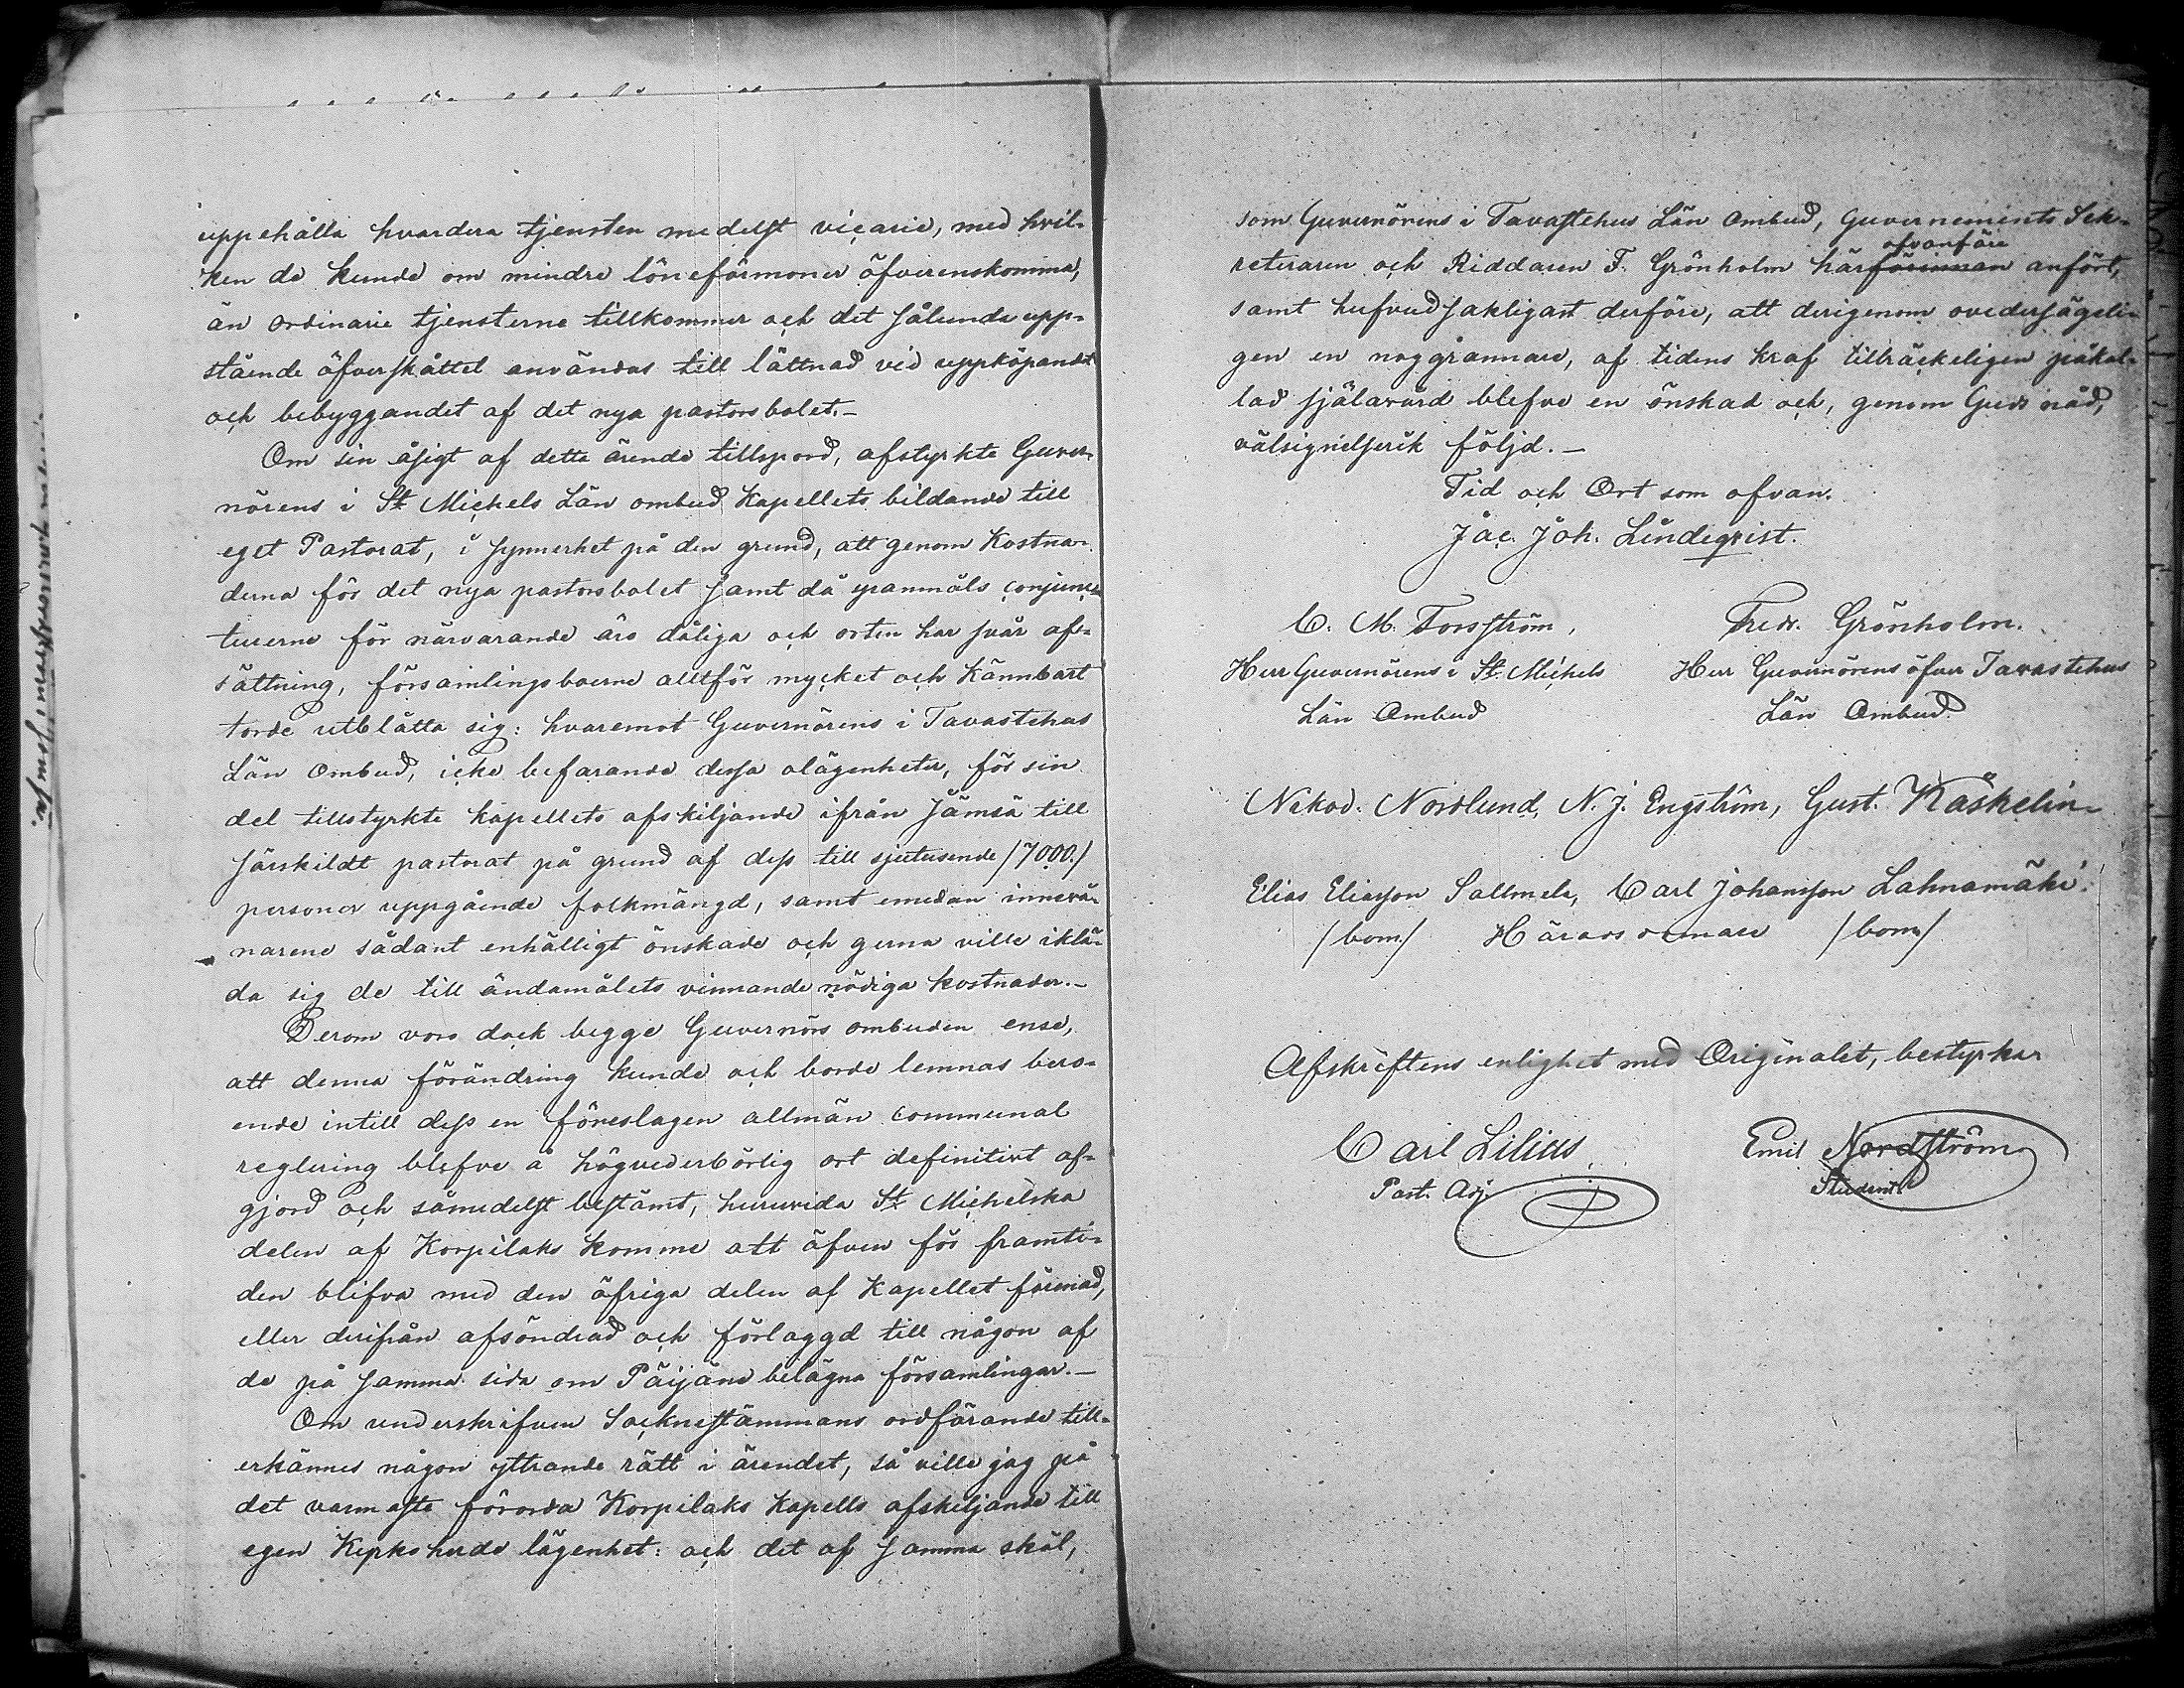 uppehålla hvardera tjensten medelst vicarie, med hvil-
ken de kunde om mindre löneförmoner öfverenskomma,
än ordinarie tjensterne tillkommer och det sålunda upp-
stående öfverskåttet användas till lättnad vid uppköpandet
och bebyggandet af det nya pastorsbolet.-
Om sin åsigt af detta ärende tillspord, afstyrkte Guver-
nörens i St Michels Län ombud Kapellets bildande till
eget Pastorat, i synnerhet på den grund, att genom Kostna-
derna för det nya pastorsbolet samt då spanmåls conjunc-
turerne för närvarande äro dåliga och orten har svår af-
sättning, församlingsboerne alltför mycket och Kännbart
torde utblåtta sig: hvaremot Guvernörens i Tavastehus
Län Ombud, icke befarande dessa olägenheter, för sin
del tillstyrkte kapellets afskiljande ifrån Jämsä till
särskildt pastorat på grund af dess till sjutusende /7000./
personer uppgående folkmängd, samt emedan innevå-
narene sådant enhälligt önskade och gerna ville iklä-
da sig de till ändamålets vinnande nödiga kostnader.-
Derom voro dock begge Guvernörs ombuden ense,
att denna förändring kunde och borde lemnas bero-
ende intill dess en föreslagen allmän communal
reglering blefve å högvederbörlig ort definitivt af-
gjord och såmedelst bestämt, huruvida St Michelska
delen af Korpilaks komme att äfven för framti-
den blifva med den öfriga delen af Kapellet förenad,
eller derifrån afsöndrad och förlaggd till någon af
de på samma sida om Päijäne belägna församlingar.-
Om underskrifven Socknestämmans ordförande till-
erkännes någon yttrande rätt i ärendet, så ville jag på
det varmaste förorda Korpilaks Kapells afskiljande till
egen Kyrkoherde lägenhet: och det af samma skäl,
som Guvernörens i Tavastehus Län Ombud, Guvernements Sek-
ofvanföre
reteraren och Riddaren F. Grönholm härförinnan anfört,
samt hufvudsakligast derföre, att derigenom ovedersägeli-
gen en noggrannare, af tidens kraf tillräckeligen påkal-
lad själavård blefve en önskad och, genom Guds nåd,
välsignelserik följd.-
Tid och Ort som ofvan.
Jac. Joh. Lindeqvist.
C. M. Forsström, Fredr. Grönholm.
Herr Guvernörens i St. Michels Herr Guvernörens öfver Tavastehus
Län Ombud Län Ombud.
Nikod. Nordlund, N. J. Engström, Gust. Käskelin
Elias Eliasson Sallmela, Carl Johansson Lahnamäki.
/bom./ Häradsdomare /bom/
Afskriftens enlighet med Originalet, bestyrkar
Carl Lilius Emil Nordström
Past. Adj. Student